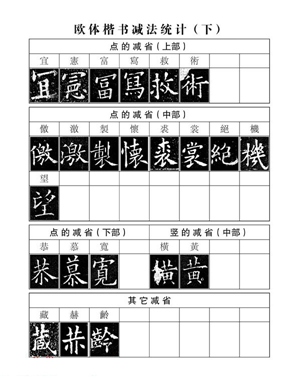 欧体楷书减法统计（下）
点的减省（上部）
宜 憲 富 寫 救 術
宜 憲 富 寫 救 術
点的减省（中部）
徵 激 製 懷 裘 裳 絕 機
激 製 懷 裘 裳 絕 機
望
望
点的减省（下部） 竖的减省（中部）
恭 慕 寬 橫 黃
恭 慕 寬 橫 黃
其它减省
藏 赫 齡
藏 赫 齡